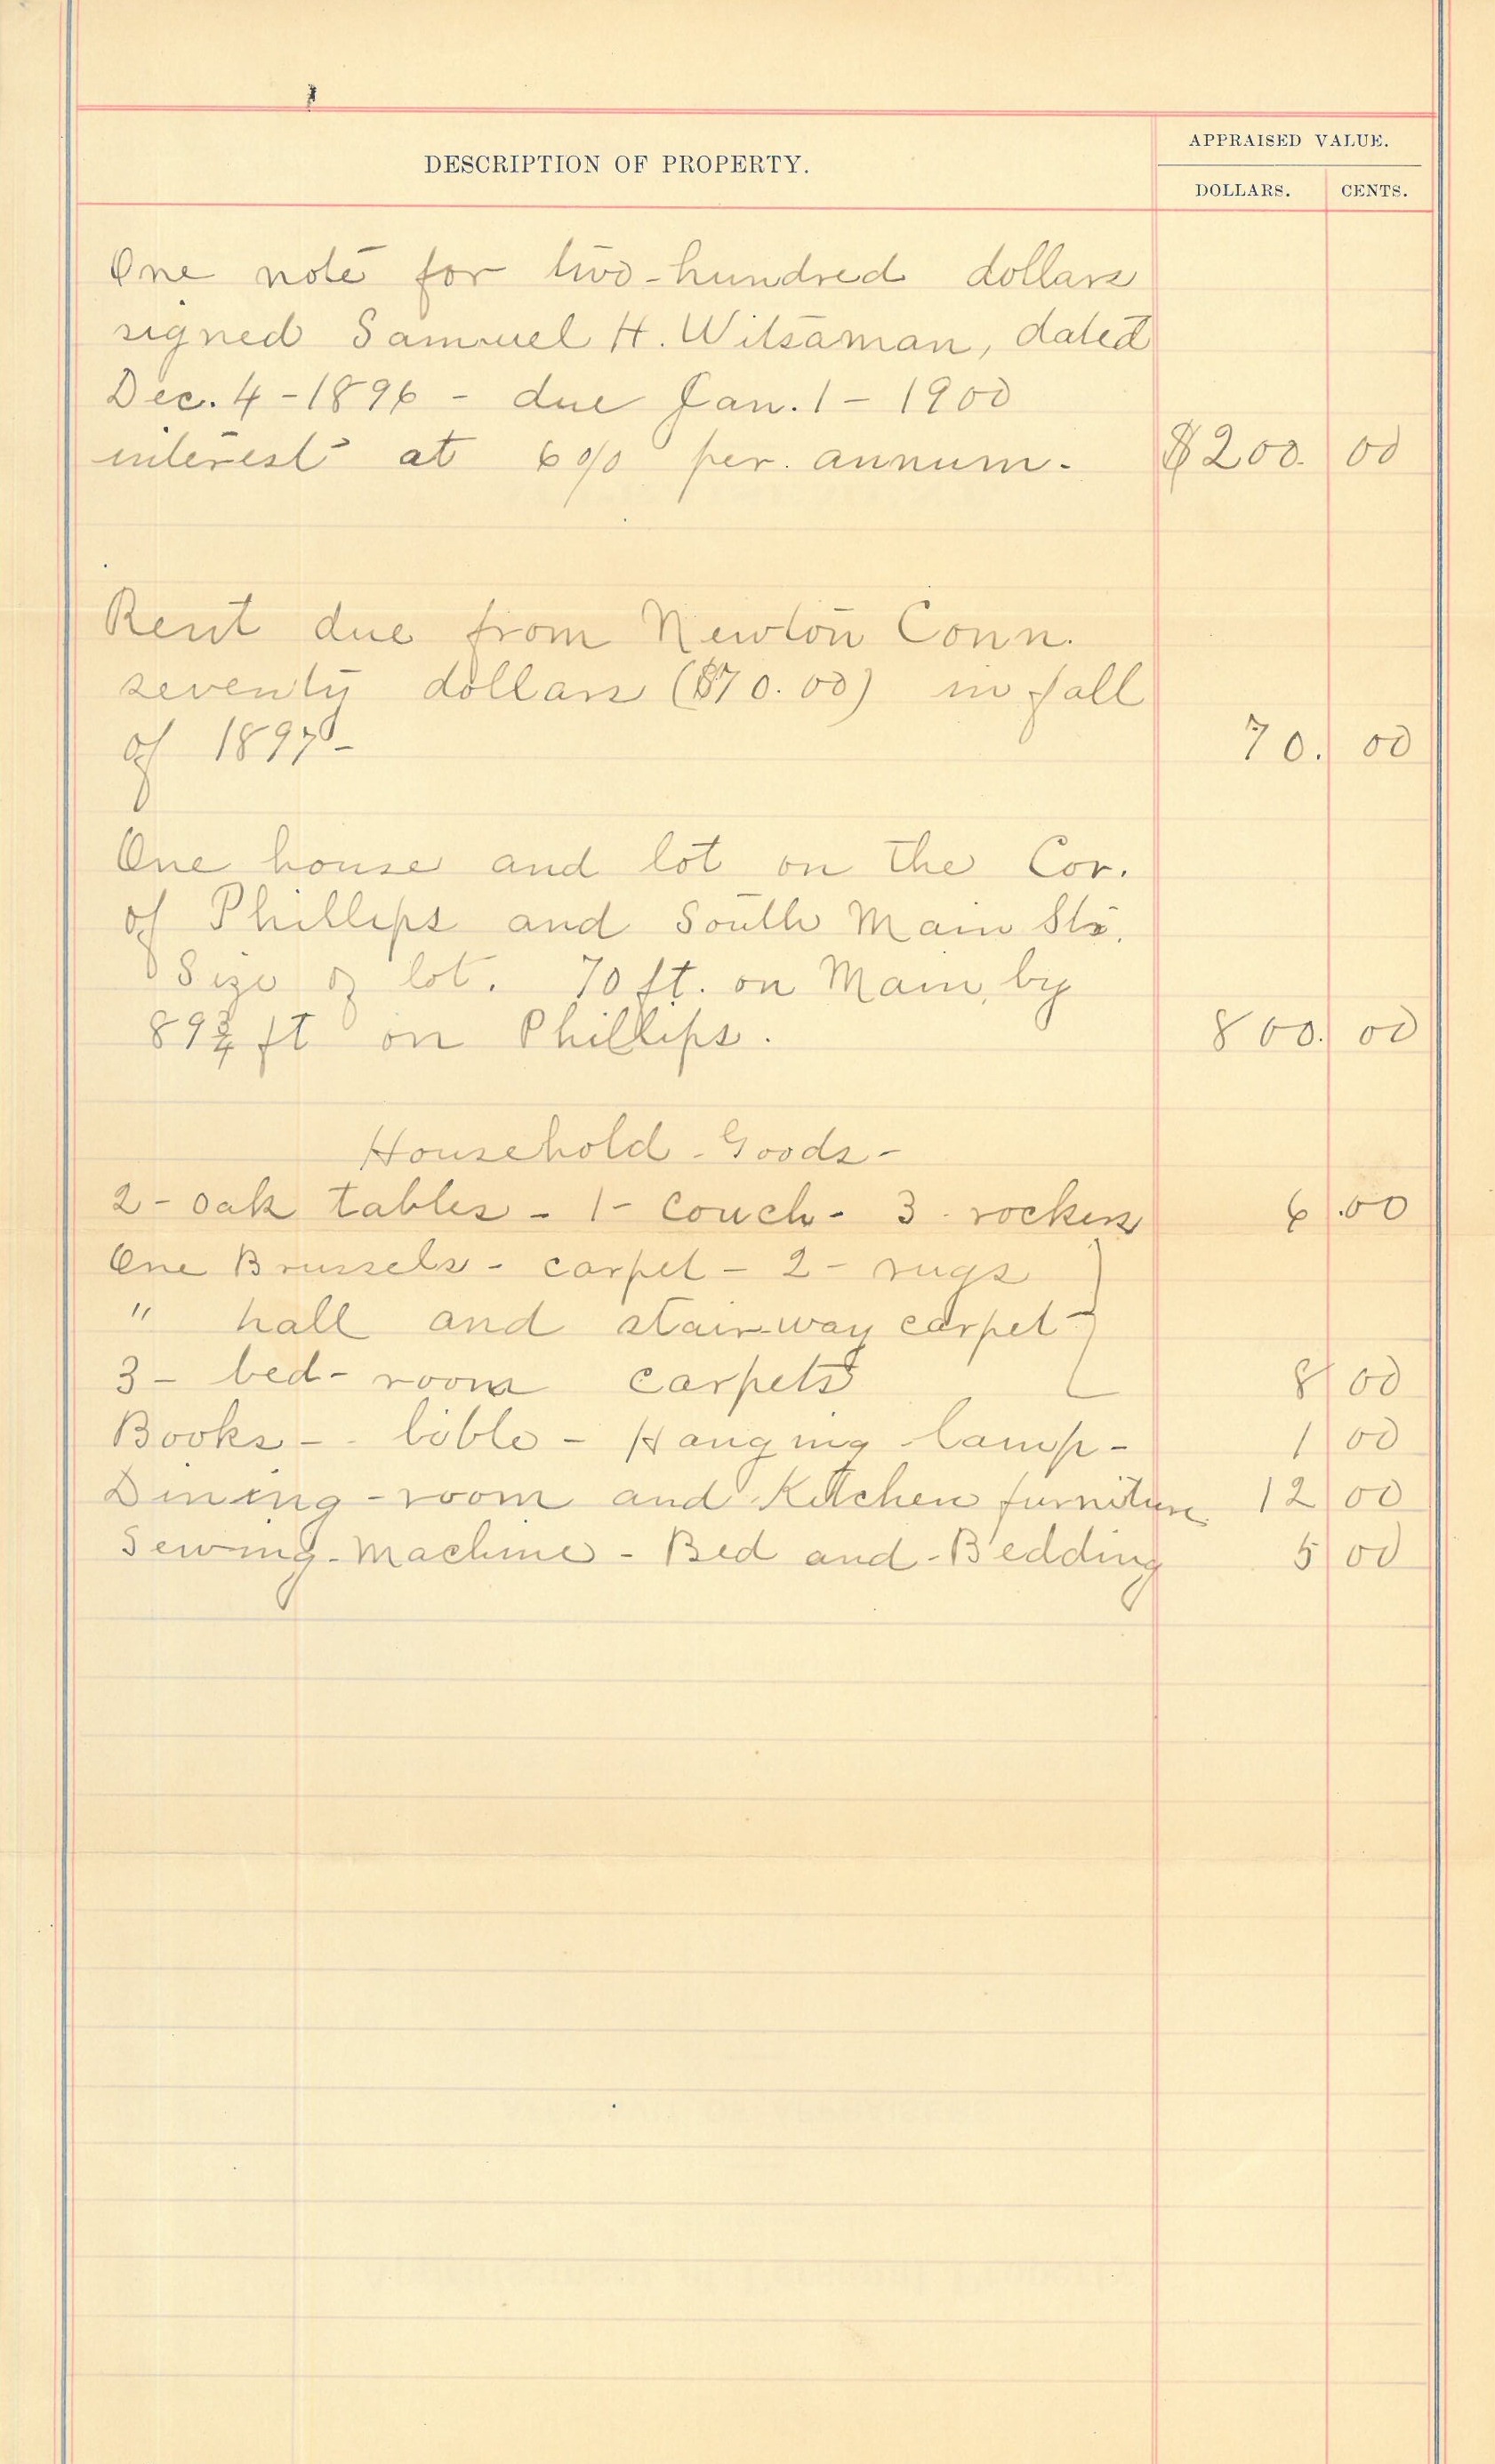 DESCRIPTION OF PROPERTY.
APPRAISED VALUE.
DOLLARS. CENTS.
One note for two-hundred dollars
signed Samuel H. Witsaman, dated
Dec. 4-1896 - due Jan. 1 - 1900
interest at 6% per. annum. $200. 00
Rent due from Newton Conn.
seventy dollars ($70.00) in fall
of 1897- 70. 00
One house and lot on the Cor.
of Phillips and South Main Sts.
Size of lot. 70 ft. on Main, by
89¾ ft on Phillips. 800. 00
Household - Goods -
2 - oak tables - 1 - couch - 3 - rockers 6.00
One Brussels - carpet - 2 - rugs
" hall and stair-way carpet -
3 - bed - room carpets 8 00
Books - - bible - Hanging lamp - 1 00
Dining - room and Kitchen furniture 12 00
Sewing - Machine - Bed and - Bedding 5 00